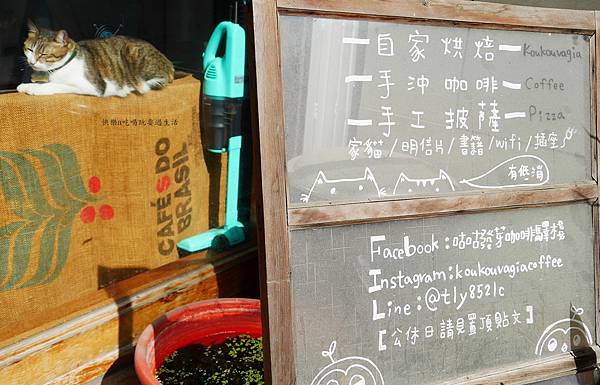 一自家烘焙一 Koukouvagia
一手沖咖啡一 Coffee
一手工披薩一 Pizza
家貓/明信片/書籍/wifi/插座
有低消
Facebook:咕咕發芽咖啡驛棧
Instagram:koukouvagiacoffee
Line:@tly8521c
【公休日請見置頂貼文】
快樂的吃喝玩耍過生活
CAFÉS DO
BRASIL